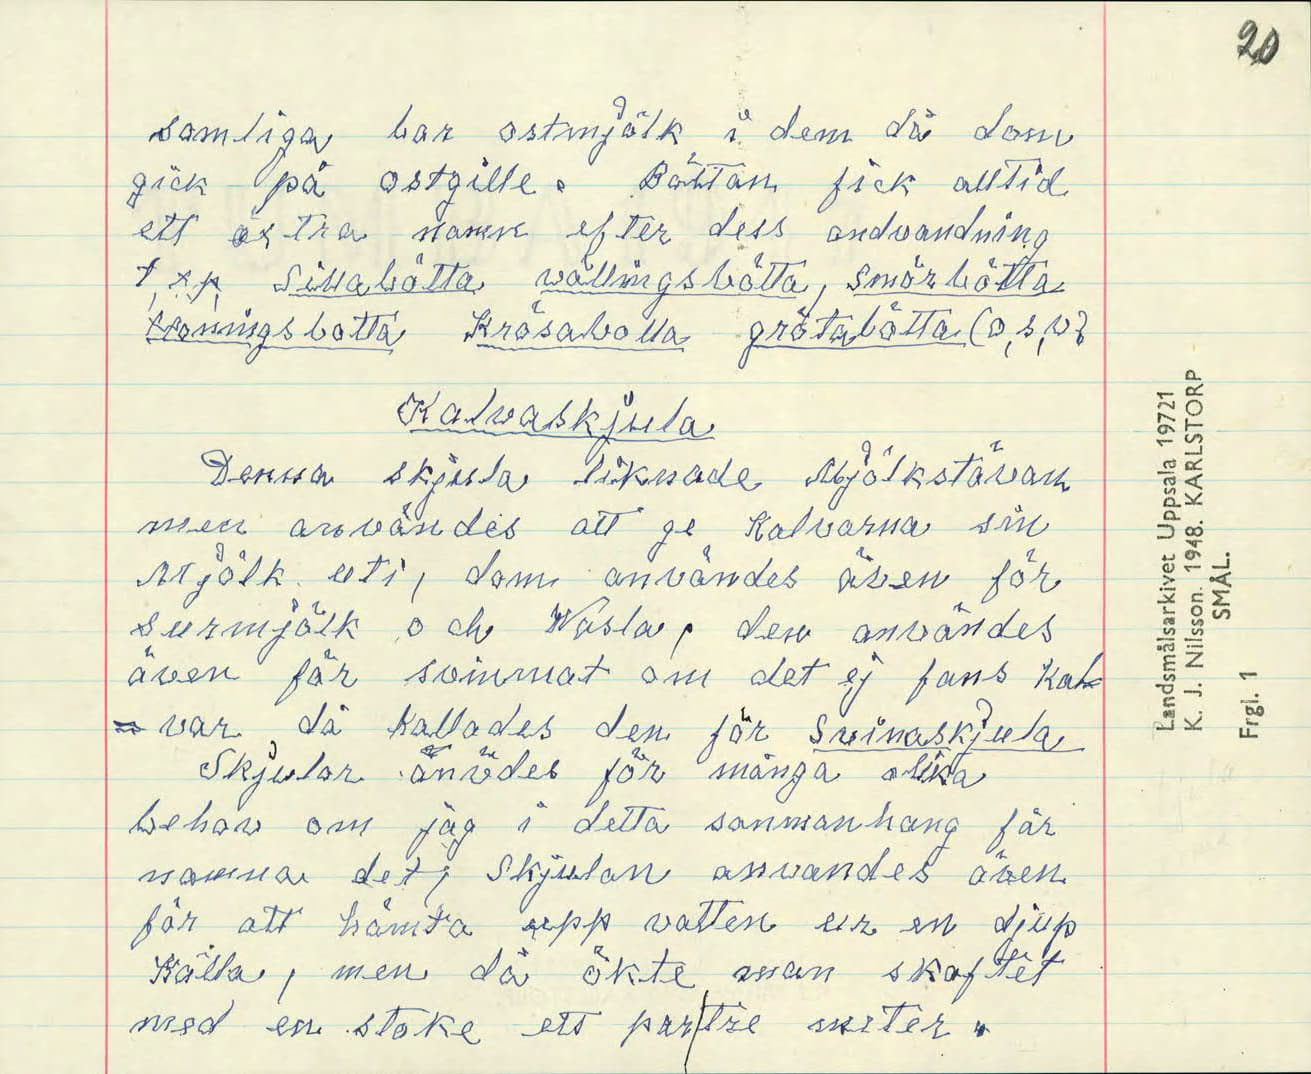 20
samliga bar ostmjölk i dem då dom
gick på ostgille. Böttan fick alltid
ett extra namn efter dess andvandning
t,ex, Sillabötta vällingsbötta, smörbötta
Honingsbotta Krösabotta grötabötta (o,s,v)
Kalvaskjula
Denna skjula liknade Mjölkstävan
men användes att ge Kalvarna sin
Mjölk uti, dom användes även för
surmjölk och Wasla, den användes
även för svinmat om det ej fans Kal-
=var då kallades den för Svinaskjula
Skjular änvdes för många olika
behov om jag i detta sanmanhang får
namna det; Skjulan anvandes även
för att hämta upp vatten ur en djup
Källa, men då ökte man skaftet
med en stake ett par/tre meter.
Landsmålsarkivet Uppsala 19721
K. J. Nilsson. 1948. KARLSTORP
SMÅL.
Frgl. 1